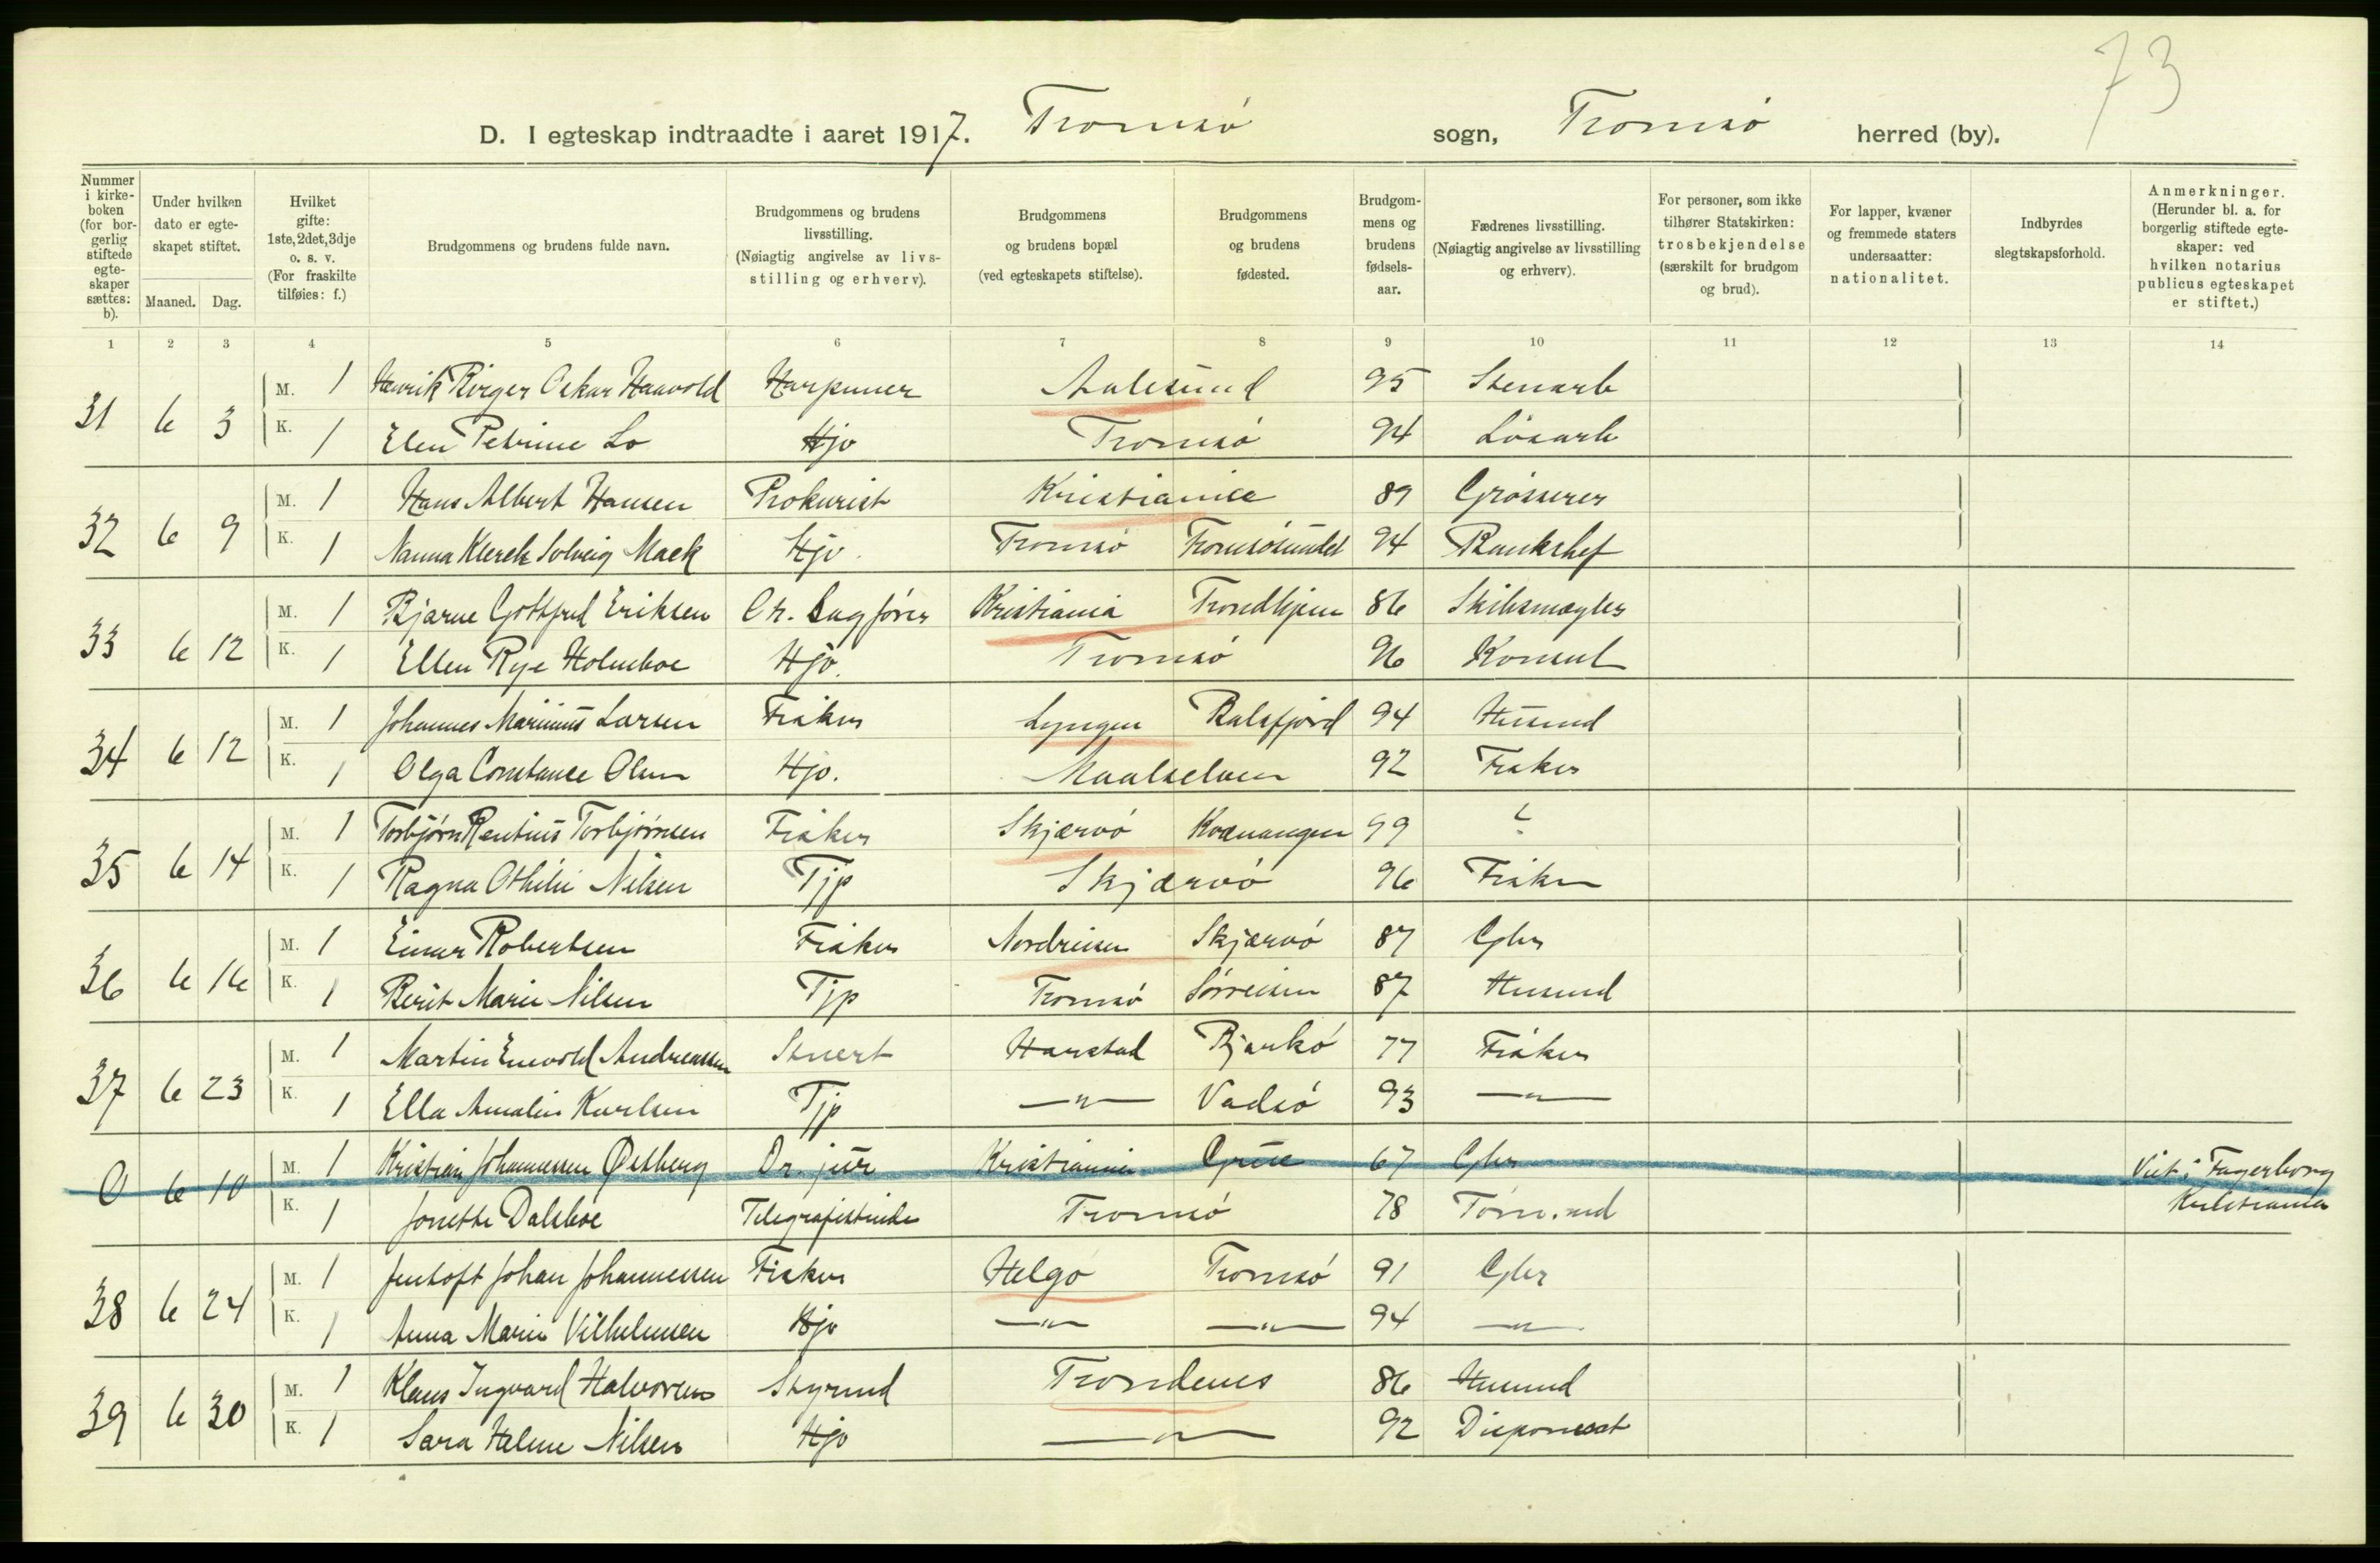 73
D. I egteskap indtraadte i aaret 1917. Tromsø sogn, Tromsø herred (by).
Nummer i kirke-boken (for bor-gerlig stiftede egte-skaper sættes: b).
Under hvilken dato er egte-skapet stiftet.
Maaned. Dag.
Hvilket gifte: 1ste, 2det, 3dje o. s. v. (For fraskilte tilføies: f.)
Brudgommens og brudens fulde navn.
Brudgommens og brudens livsstilling. (Nøiagtig angivelse av livs-stilling og erhverv).
Brudgommens og brudens bopæl (ved egteskapets stiftelse).
Brudgommens og brudens fødested.
Brudgom-mens og brudens fødsels-aar.
Fædrenes livsstilling. (Nøiagtig angivelse av livsstilling og erhverv).
For personer, som ikke tilhører Statskirken: trosbekjendelse (særskilt for brudgom og brud).
For lapper, kvæner og fremmede staters undersaatter: nationalitet.
Indbyrdes slegtskapsforhold.
Anmerkninger. (Herunder bl. a. for borgerlig stiftede egte-skaper: ved hvilken notarius publicus egteskapet er stiftet.)
1 2 3 4 5 6 7 8 9 10 11 12 13 14
31 6 3 M. 1 Henrik Birger Oskar Haavold Harpuner Aalesund 95 Stenarb
K. 1 Elen Petrine Lo Hjo Tromsø 94 Løsarb
32 6 9 M. 1 Hans Albert Hansen Prokurist Kristiania 89 Grosserer
K. 1 Nanna Klerck Solveig Mack Hjo. Tromsø Tromsøsundet 94 Bankchef
33 6 12 M. 1 Bjarne Gottfred Eriksen O.r. Sagfører Kristiania Trondhjem 86 Skibsmægler
K. 1 Ellen Rye Holmboe Hjo. Tromsø 96 Konsul
34 6 12 M. 1 Johannes Marinius Larsen Fisker Lyngen Balsfjord 94 Husmd
K. 1 Olga Constance Olsen Hjo. Maalselven 92 Fisker
35 6 14 M. 1 Torbjørn Rentius Torbjørnsen Fisker Skjærvø Kvænangen 99 ?
K. 1 Ragna Othilie Nilsen Tjp Skjærvø 96 Fisker
36 6 16 M. 1 Einar Robertsen Fisker Nordreisen Skjærvø 87 Gbr
K. 1 Berit Marie Nilsen Tjp Tromsø Sørreisen 87 Husmd
37 6 23 M. 1 Martin Enevold Andreassen Stuert Harstad Bjarkø 77 Fisker
K. 1 Ella Amalie Karlsen Tjp —"— Vadsø 93 —"—
0 6 10 M. 1 Kristian Johannessen Østberg Dr. jur Kristiania Grue 67 Gbr Viet i Fagerborg
K. 1 Jonette Dalsboe Telegrafistinde Tromsø 78 Kristiania
38 6 24 M. 1 Jentoft Johan Johannessen Fisker Helgø Tromsø 91 Gbr
K. 1 Anna Marie Vilhelmsen Hjo —"— —"— 94 —"—
39 6 30 M. 1 Klaus Ingvard Halvorsen Styrmd Trondenes 86 Husmd
K. 1 Sara Helene Nilsen Hjo —"— 92 Disponent